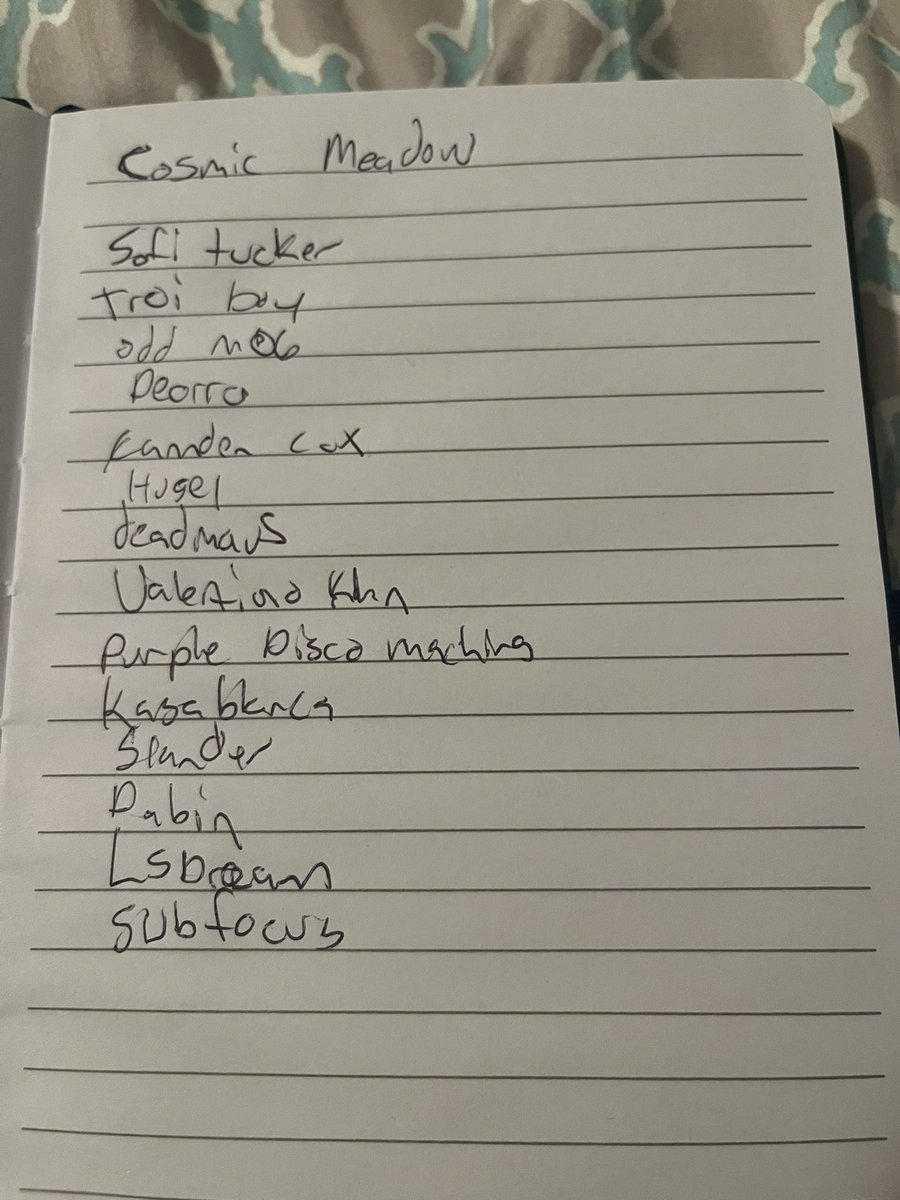 Cosmic Meadow
Sofi tucker
troi boy
odd mob
Deorro
Kamden Cox
Hugel
deadmau5
Valentino Khn
Purple Disco maching
Kasablanca
Slander
Dabin
LSDream
SUbfocus